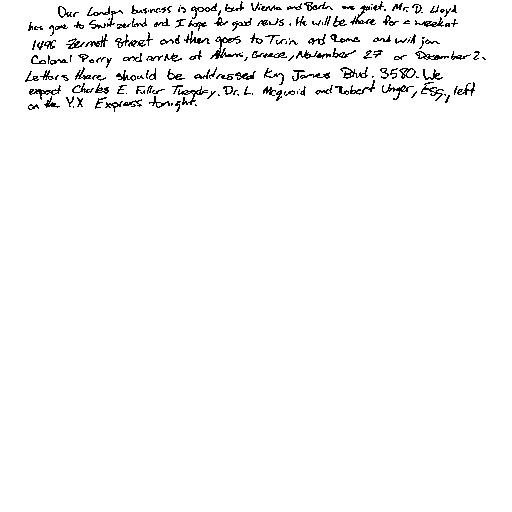 Our London business is good, but Vienna and Berlin are quiet. Mr. D. Lloyd
has gone to Switzerland and I hope for good news. He will be there for a week at
1496 Zermott Street and then goes to Turin and Rome and will join
Colonel Parry and arrive at Athens, Greece, November 27 or December 2.
Letters there should be addressed King James Blvd. 3580. We
expect Charles E. Fuller Tuesday. Dr. L. Mcquoid and Robert Unger, Esq., left
on the Y.X Express tonight.